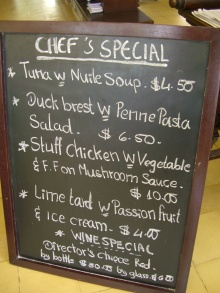 CHEF'S SPECIAL
* Tuna w Nuile Soup. $4.50
* Duck brest w Penne Pasta
Salad. $ 6.50
* Stuff chicken w Vegetable
& F.F on Mushroom Sauce.
$ 10.00
* Lime tard w Passion fruit
& ice cream. $ 4.00
* WINE SPECIAL
Director's choice Red
by bottle $ 30.00 by glass $ 6.00